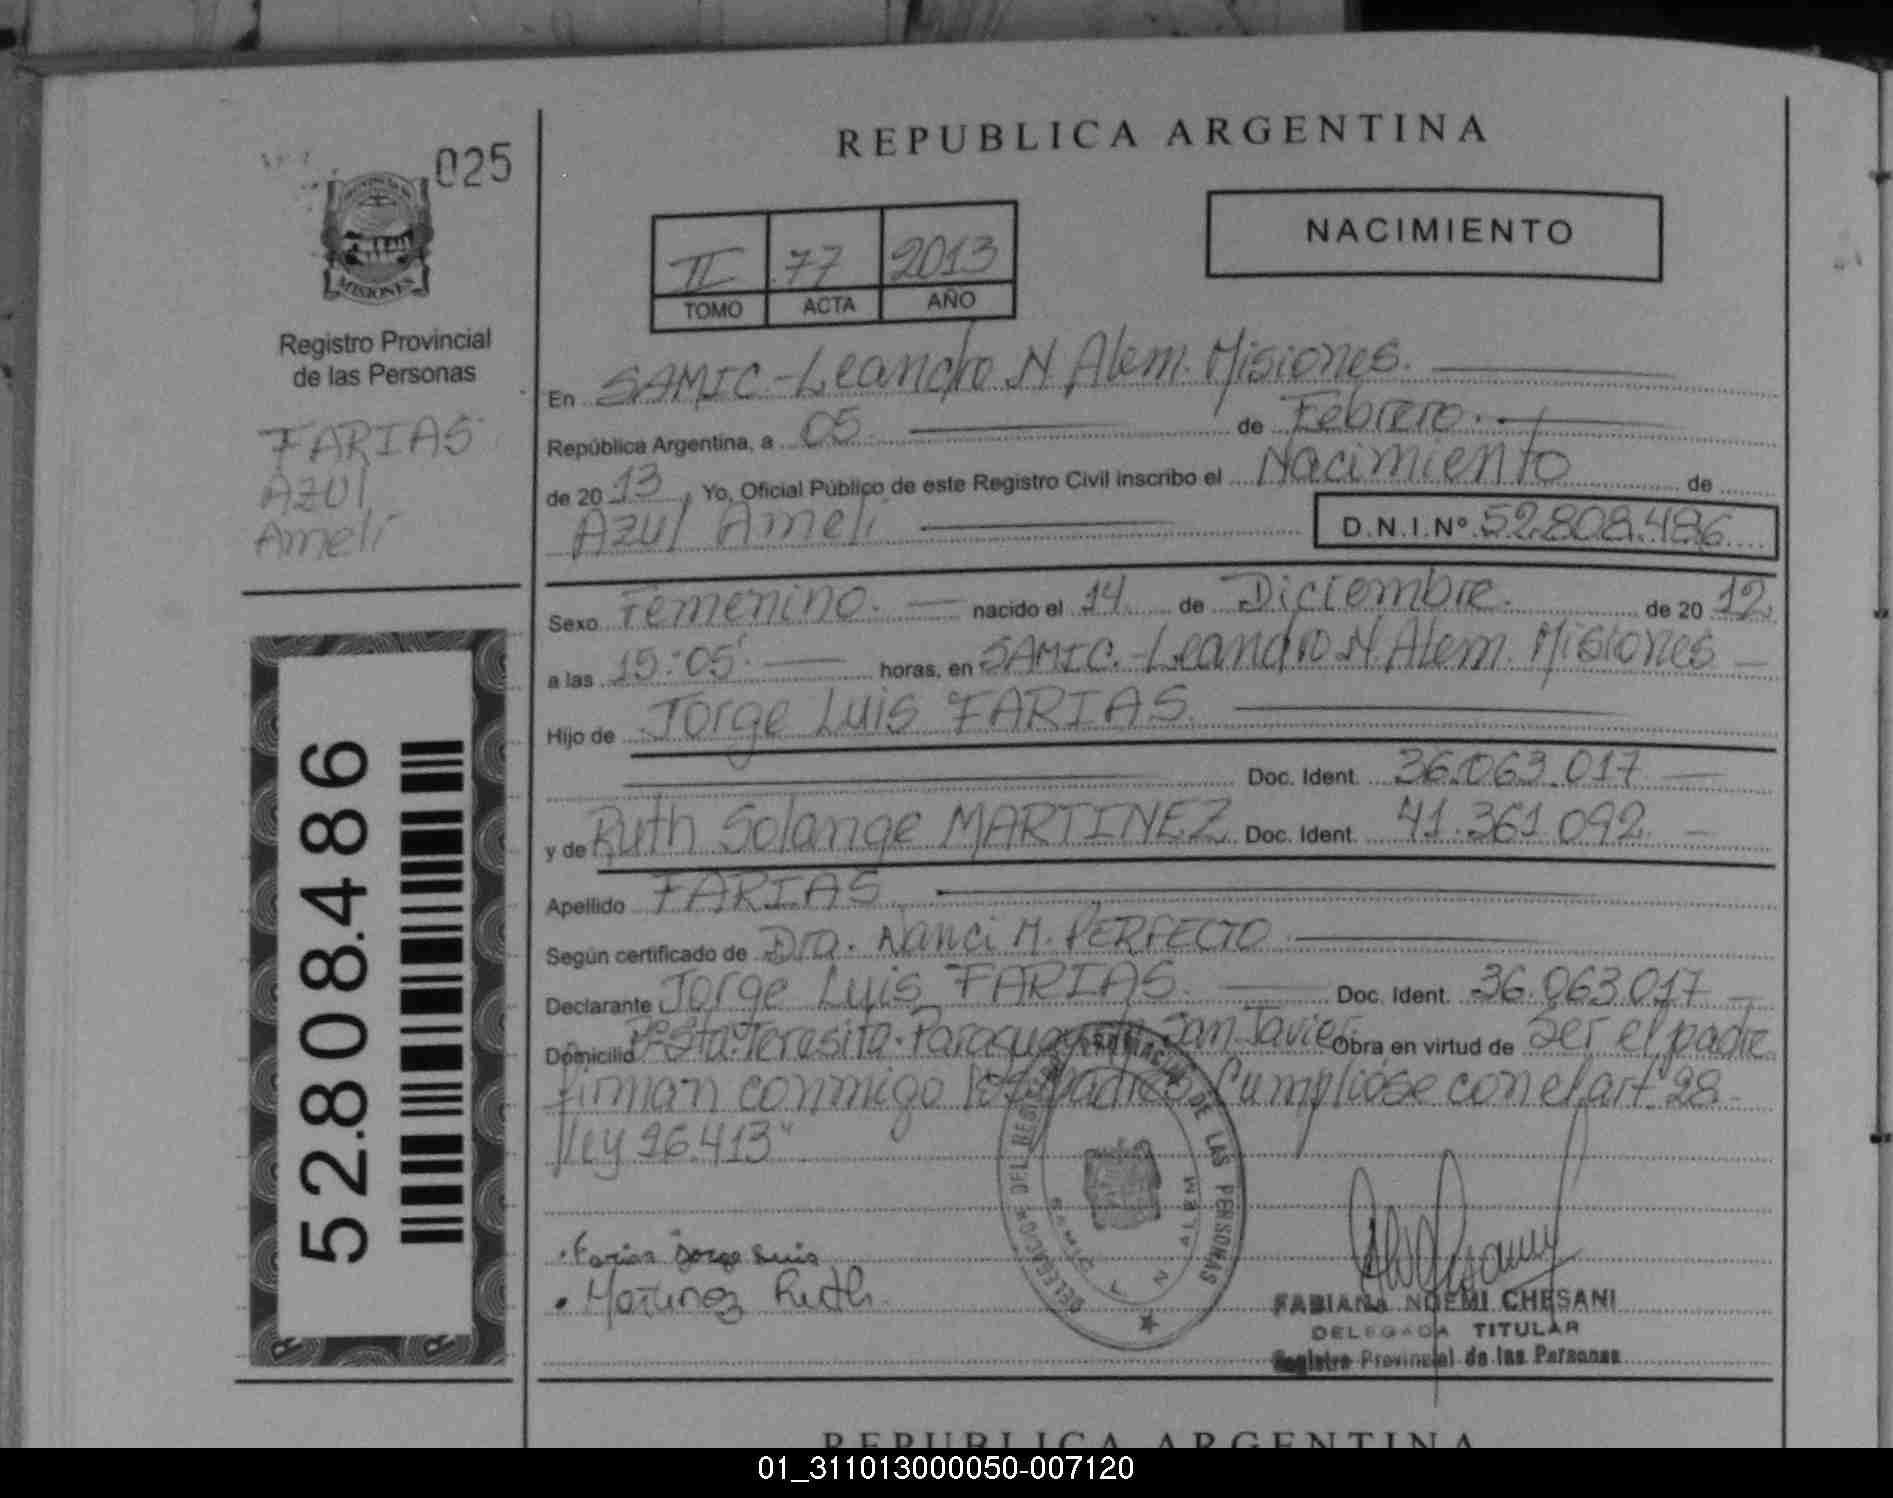 025
MISIONES
Registro Provincial
de las Personas
FARIAS
AZUL
Ameli
52.808.486
REPUBLICA ARGENTINA
NACIMIENTO
II 77 2013
TOMO ACTA AÑO
En SAMIC - Leandro N Alem. Misiones.
República Argentina, a 05 de Febrero.
de 2013, Yo, Oficial Público de este Registro Civil inscribo el Nacimiento de
Azul Ameli D.N.I.Nº 52.808.486
Sexo Femenino. nacido el 14 de Diciembre. de 2012
a las 15:05 horas, en SAMIC. - Leandro N Alem. Misiones
Hijo de Jorge Luis FARIAS
Doc. Ident. 36.063.017
y de Ruth Solange MARTINEZ Doc. Ident. 41.361.092
Apellido FARIAS
Según certificado de Dra. Nanci M. PERFECTO
Declarante Jorge Luis FARIAS Doc. Ident. 36.063.017
Domicilio Pº Sta. Teresita. San Javier. Obra en virtud de Ser el padre
firman conmigo los padres Cumplióse con el art. 28
ley 26.413"
Farias Jorge Luis
Martinez Ruth
DE LAS PERSONAS
FABIANA NOEMI CHESANI
DELEGADA TITULAR
Registro Provincial de las Personas
REPUBLICA ARGENTINA
01_311013000050-007120